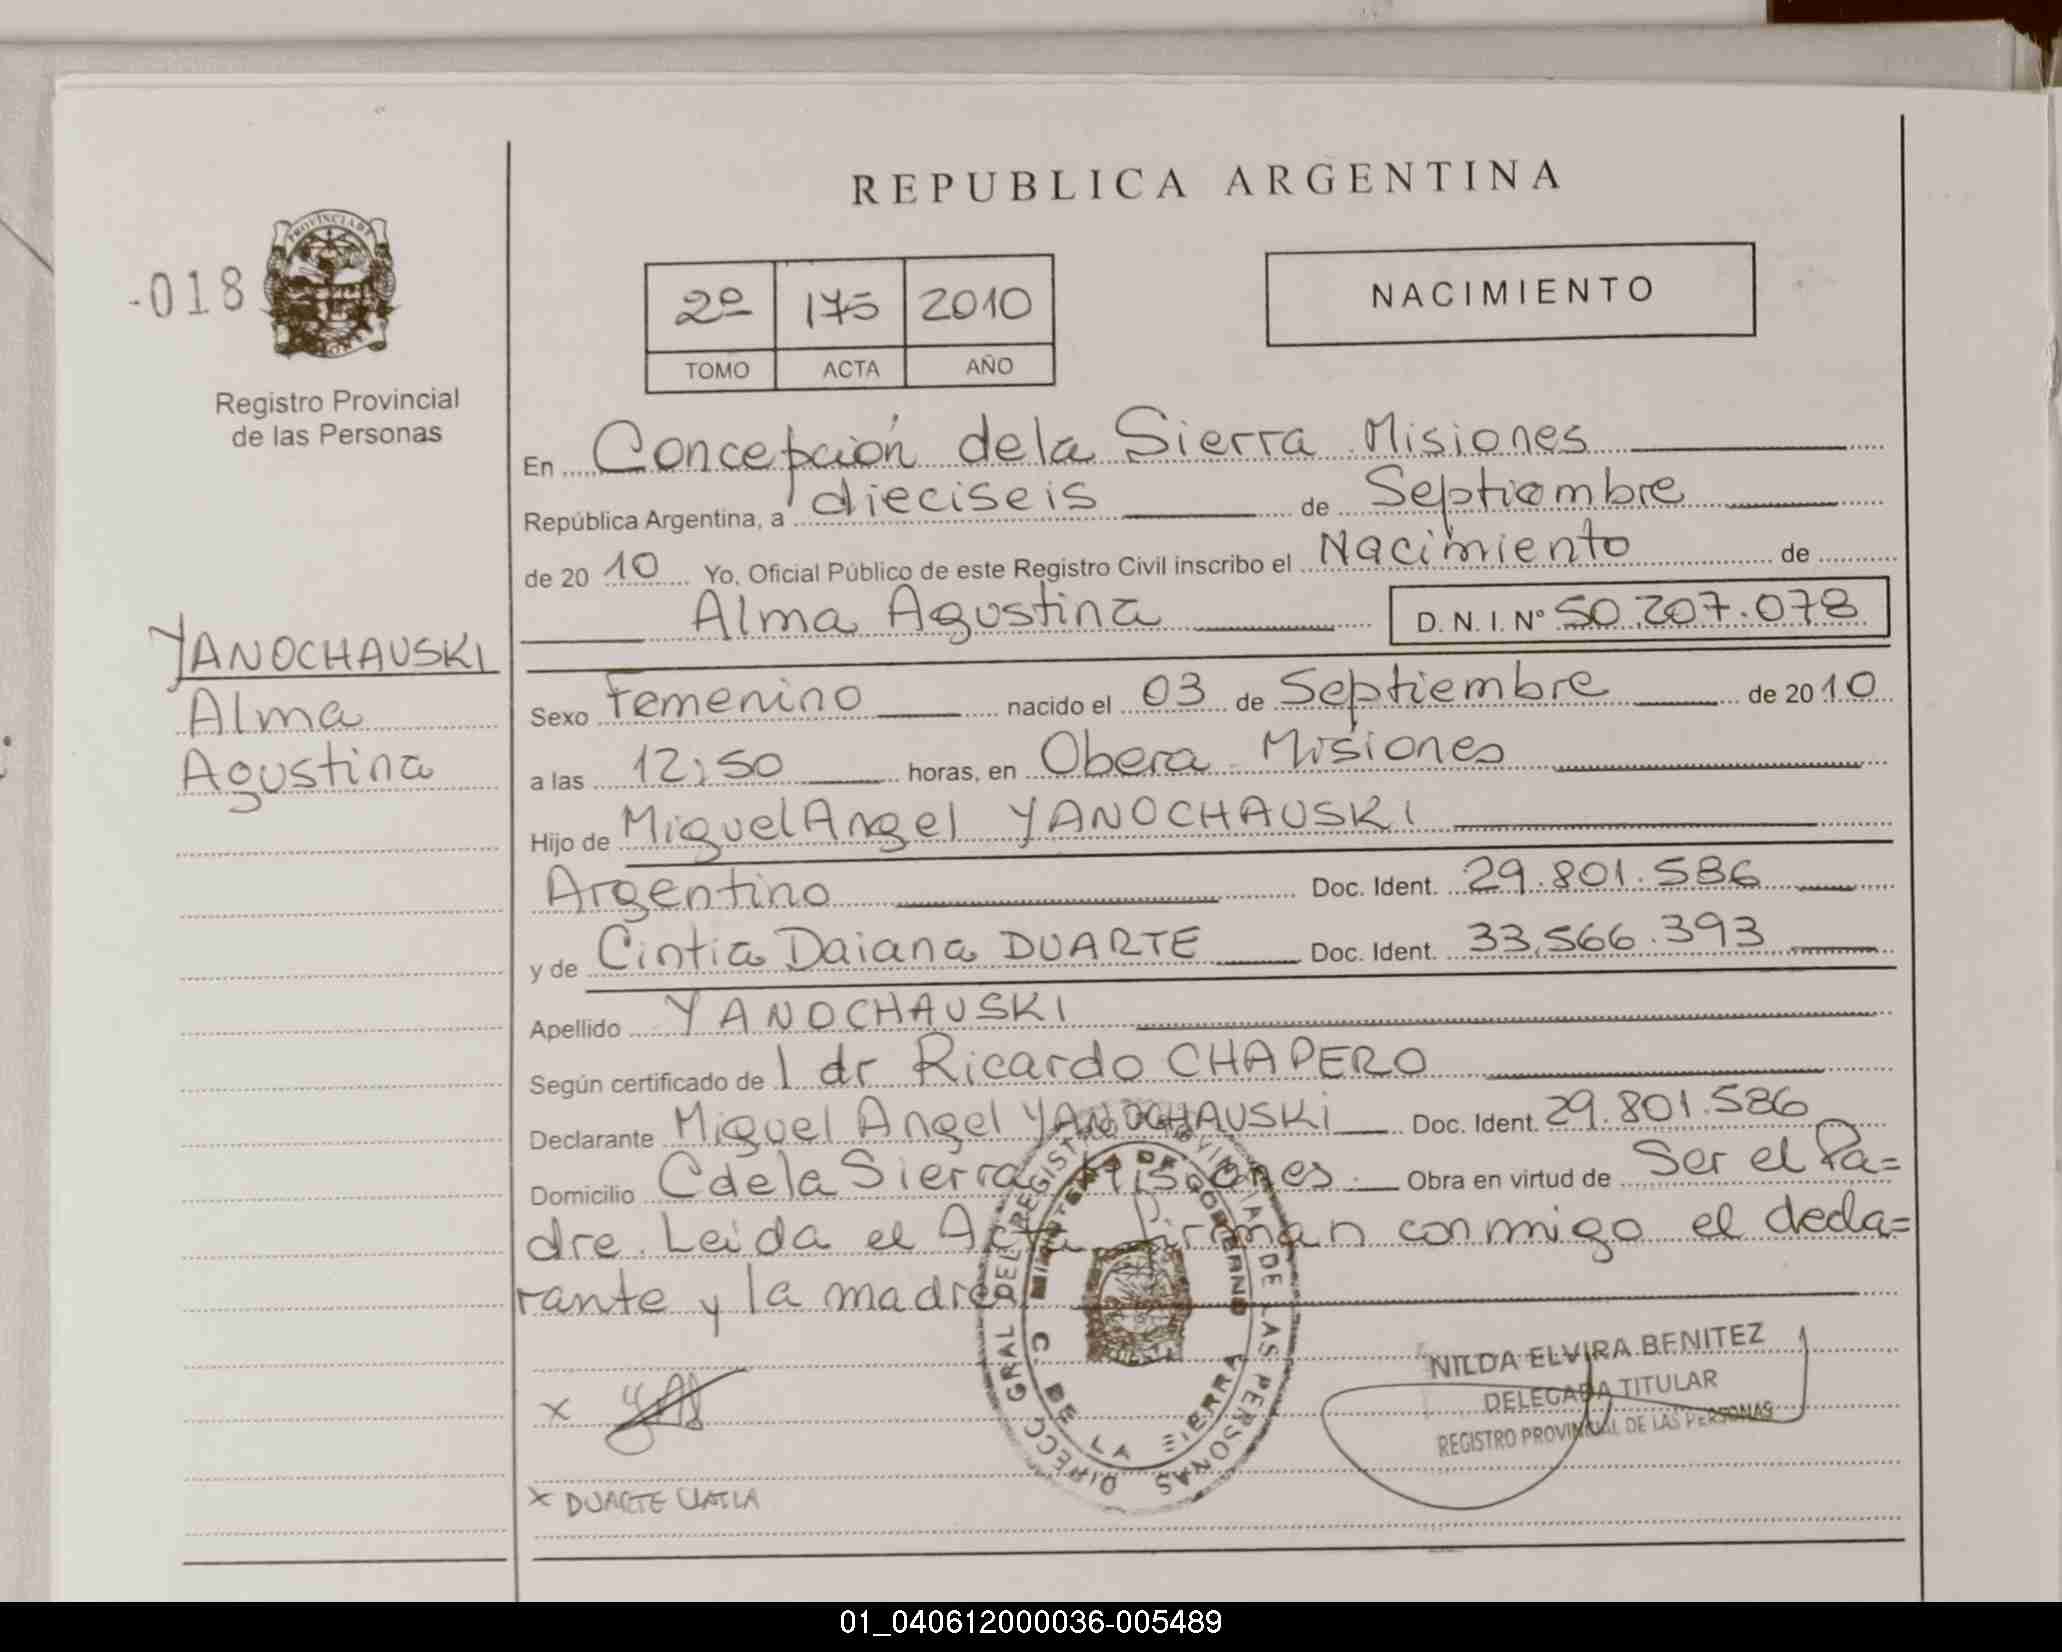 REPUBLICA ARGENTINA
-018
PROVINCIA DE
MISIONES
Registro Provincial
de las Personas
2º 175 2010
TOMO ACTA AÑO
NACIMIENTO
En Concepción de la Sierra Misiones
República Argentina, a dieciseis de Septiembre
de 2010 Yo, Oficial Público de este Registro Civil inscribo el Nacimiento de
Alma Agustina D.N.I. Nº 50.207.078
YANOCHAUSKI
Alma
Agustina
Sexo Femenino nacido el 03 de Septiembre de 2010
a las 12,50 horas, en Obera Misiones
Hijo de Miguel Angel YANOCHAUSKI
Argentino Doc. Ident. 29.801.586
y de Cintia Daiana DUARTE Doc. Ident. 33.566.393
Apellido YANOCHAUSKI
Según certificado de l dr Ricardo CHAPERO
Declarante Miguel Angel YANOCHAUSKI Doc. Ident. 29.801.586
Domicilio C de la Sierra Misiones. Obra en virtud de Ser el Pa=
dre. Leida el Acta firman conmigo el decla=
rante y la madre
DIRECC GRAL DEL REGISTRO PROVINCIAL DE LAS PERSONAS
MINISTERIO DE GOBIERNO
C. DE LA SIERRA
NILDA ELVIRA BENITEZ
DELEGADA TITULAR
REGISTRO PROVINCIAL DE LAS PERSONAS
x
x DUARTE
01_040612000036-005489